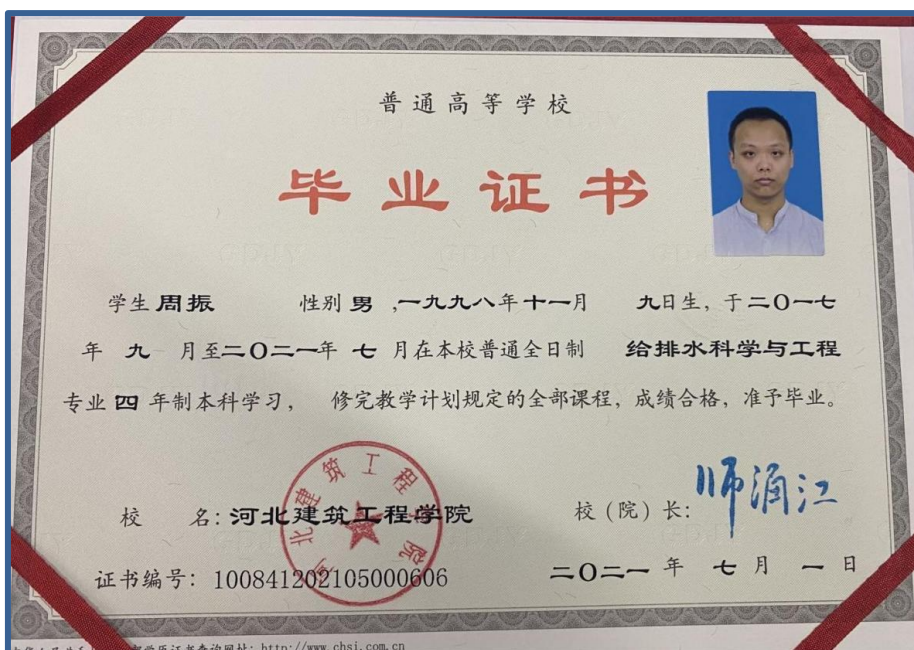 普通高等学校
毕业证书
学生 周振 性别 男 ,一九九八年十一月 九日生, 于二〇一七
年 九 月至二〇二一年 七 月在本校普通全日制 给排水科学与工程
专业 四 年制本科学习, 修完教学计划规定的全部课程, 成绩合格, 准予毕业。
河北建筑工程学院
校 名: 河北建筑工程学院
校（院）长: 师涌江
证书编号: 100841202105000606
二〇二一 年 七 月 一 日
查询网址: http://www.chsi.com.cn